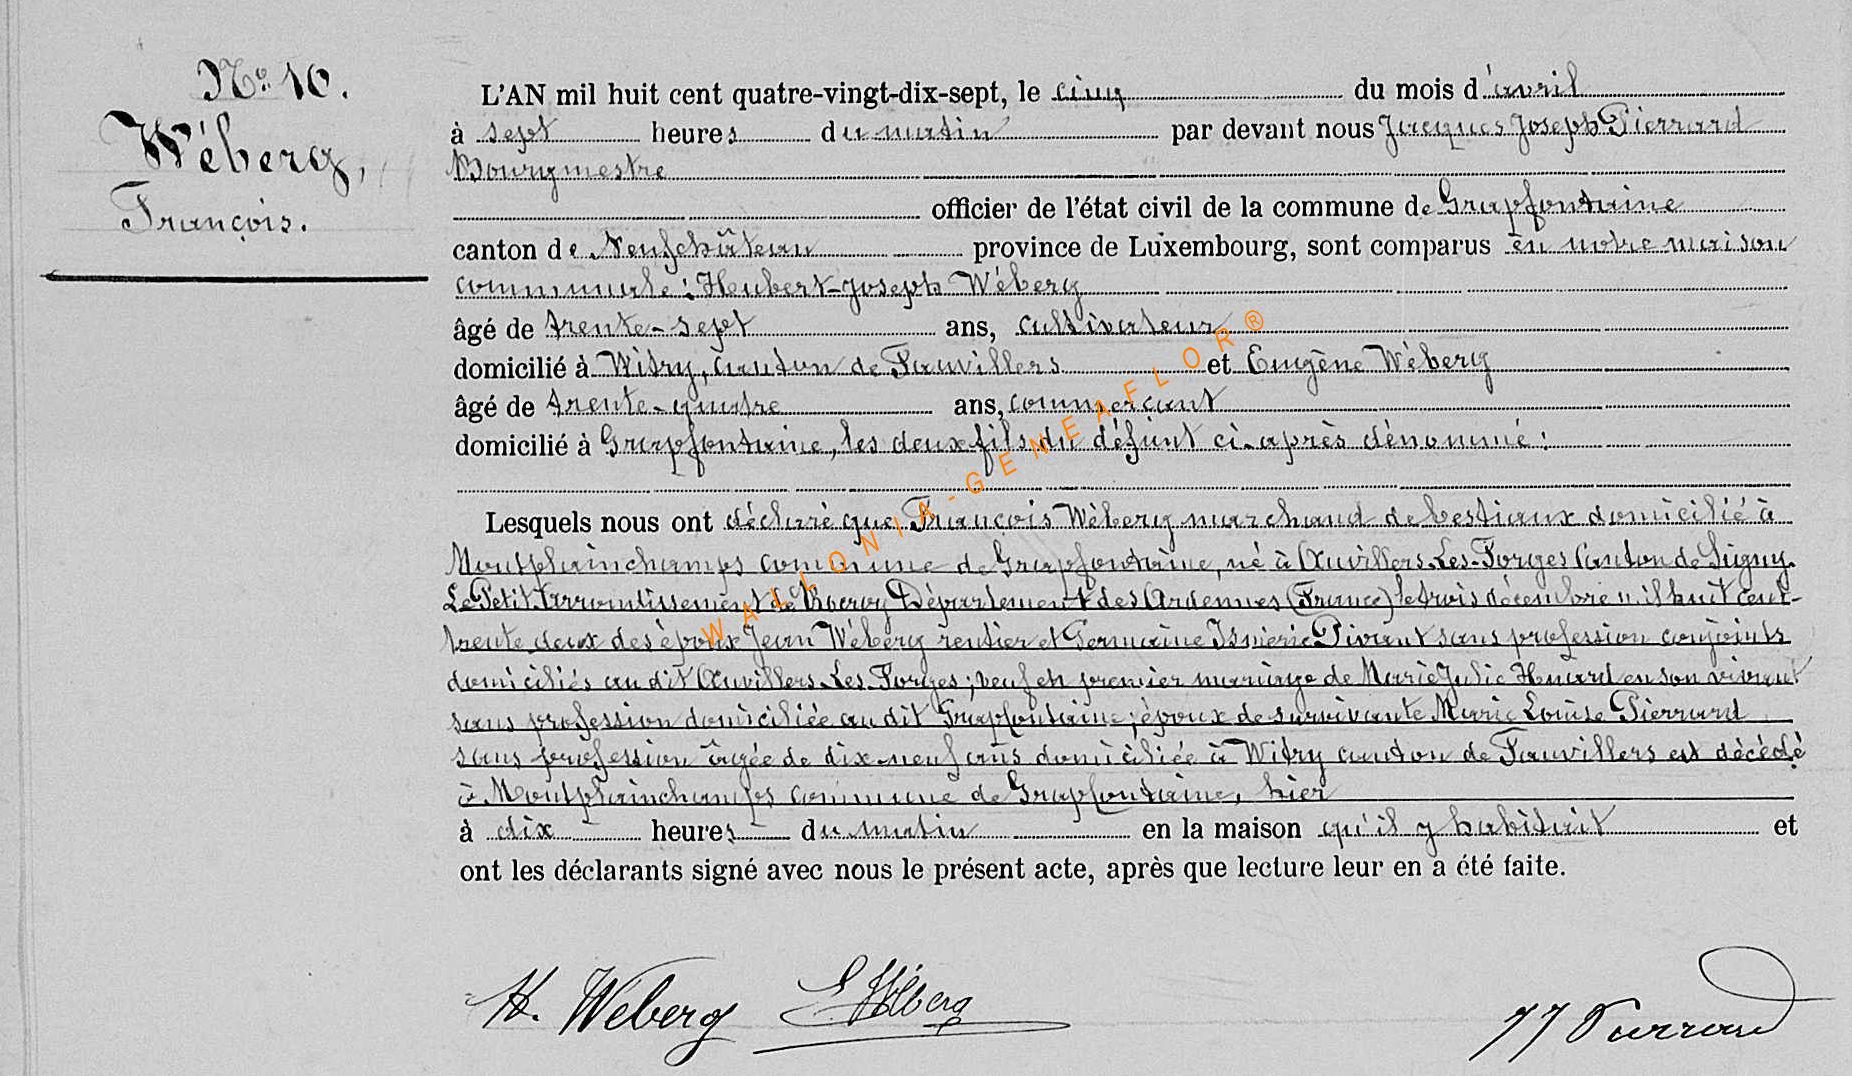 No 10.
Wéberg,
François.
L'AN mil huit cent quatre-vingt-dix-sept, le cinq du mois d'avril
à sept heures du matin par devant nous Jacques Joseph Pierrard
Bourgmestre
officier de l'état civil de la commune de Grapfontaine
canton de Neufchâteau province de Luxembourg, sont comparus en notre maison
communale : Heubert-Joseph Wéberg
âgé de trente-sept ans, cultivateur
domicilié à Witry, canton de Fauvillers et Eugène Wéberg
âgé de trente-quatre ans, commerçant
domicilié à Grapfontaine, les deux fils du défunt ci-après dénommé :
Lesquels nous ont déclaré que François Wéberg marchand de bestiaux domicilié à
Montplainchamps commune de Grapfontaine, né à Auvillers-Les-Forges Canton de Signy-
Le Petit, arrondissement de Rocroy Département des Ardennes (France) le trois décembre mil huit cent-
trente deux des époux Jean Wéberg rentier et Germaine Pivant sans profession conjoints
domiciliés au dit Auvillers-Les-Forges ; veuf en premier mariage de Marie Julie Huard en son vivant
sans profession domiciliée au dit Grapfontaine ; époux de survivante Marie Louise Pierrard
sans profession âgée de dix-neuf ans domiciliée à Witry canton de Fauvillers est décédé
à Montplainchamps commune de Grapfontaine, hier
à dix heures du matin en la maison qu'il y habitait et
ont les déclarants signé avec nous le présent acte, après que lecture leur en a été faite.
H. Weberg E Wéberg JJ Pierrard
WALLONIA-GENEAFLOR®